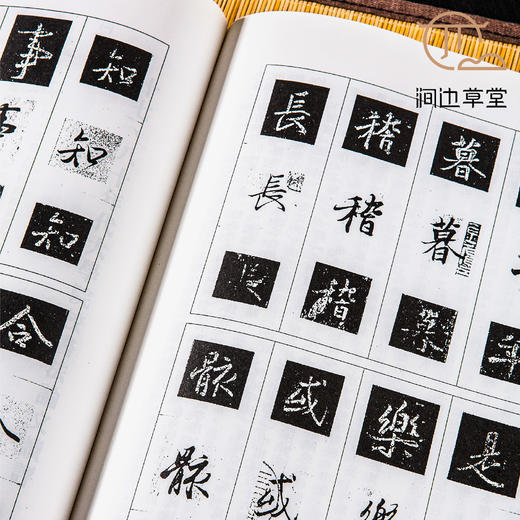 涧边草堂
事 知
知
知
合
長 稽 暮
長 稽 暮
長 稽
骸 或 樂 是
骸 或 樂